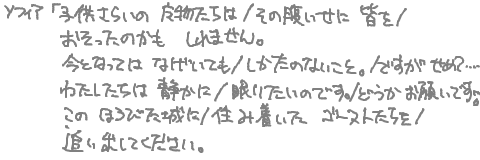 ソフィア「子供さらいの 魔物たちは/その腹いせに 皆を/
おそったのかも しれません。
今となっては なげいても/しかたのないこと。/ですが せめて…
わたしたちは 静かに/眠りたいのです。/どうか お願いです。
この ほろびた城に/住み着いた ゴーストたちを/
追い出してください。